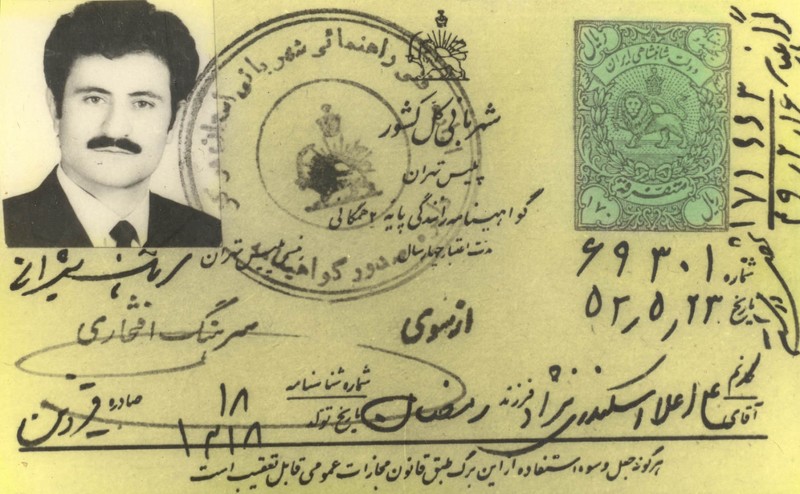 شهربانی کل کشور
پلیس تهران
گواهینامه رانندگی پایه ۲ همگانی
مدت اعتبار چهار سال
دولت شاهنشاهی ایران
متفرقه
۱۷۰ ریال
شماره ۶۹۳۰۱
تاریخ ۵۲٫۵٫۲۳
رئیس پلیس تهران
از سوی
سرهنگ افتخاری
آقای اسکندری نژاد فرزند رمضان
شماره شناسنامه ۱۸
تاریخ تولد ۱۳۱۸
صادره قزوین
هرگونه جعل و سوء استفاده از این برگ طبق قانون مجازات عمومی قابل تعقیب است